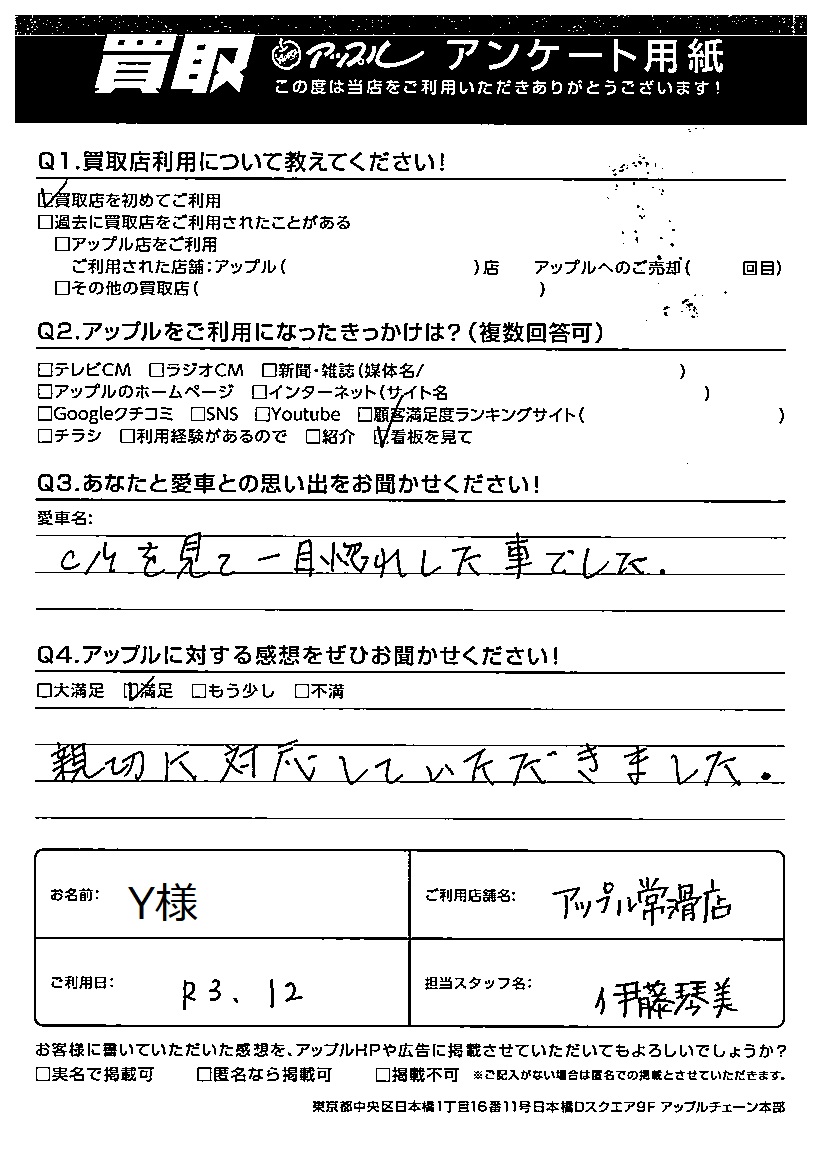 買取 アップル アンケート用紙
この度は当店をご利用いただきありがとうございます!
Q1.買取店利用について教えてください!
☑買取店を初めてご利用
□過去に買取店をご利用されたことがある
□アップル店をご利用
ご利用された店舗:アップル( )店 アップルへのご売却( 回目)
□その他の買取店( )
Q2.アップルをご利用になったきっかけは?(複数回答可)
□テレビCM □ラジオCM □新聞・雑誌(媒体名/ )
□アップルのホームページ □インターネット(サイト名 )
□Googleクチコミ □SNS □Youtube □顧客満足度ランキングサイト( )
□チラシ □利用経験があるので □紹介 ☑看板を見て
Q3.あなたと愛車との思い出をお聞かせください!
愛車名:
CMを見て一目惚れした車でした.
Q4.アップルに対する感想をぜひお聞かせください!
□大満足 ☑満足 □もう少し □不満
親切に対応していただきました.
お名前: Y様 ご利用店舗名: アップル常滑店
ご利用日: R3.12 担当スタッフ名: 伊藤琴美
お客様に書いていただいた感想を、アップルHPや広告に掲載させていただいてもよろしいでしょうか?
□実名で掲載可 □匿名なら掲載可 □掲載不可 ※ご記入がない場合は匿名での掲載とさせていただきます。
東京都中央区日本橋1丁目16番11号日本橋Dスクエア9F アップルチェーン本部